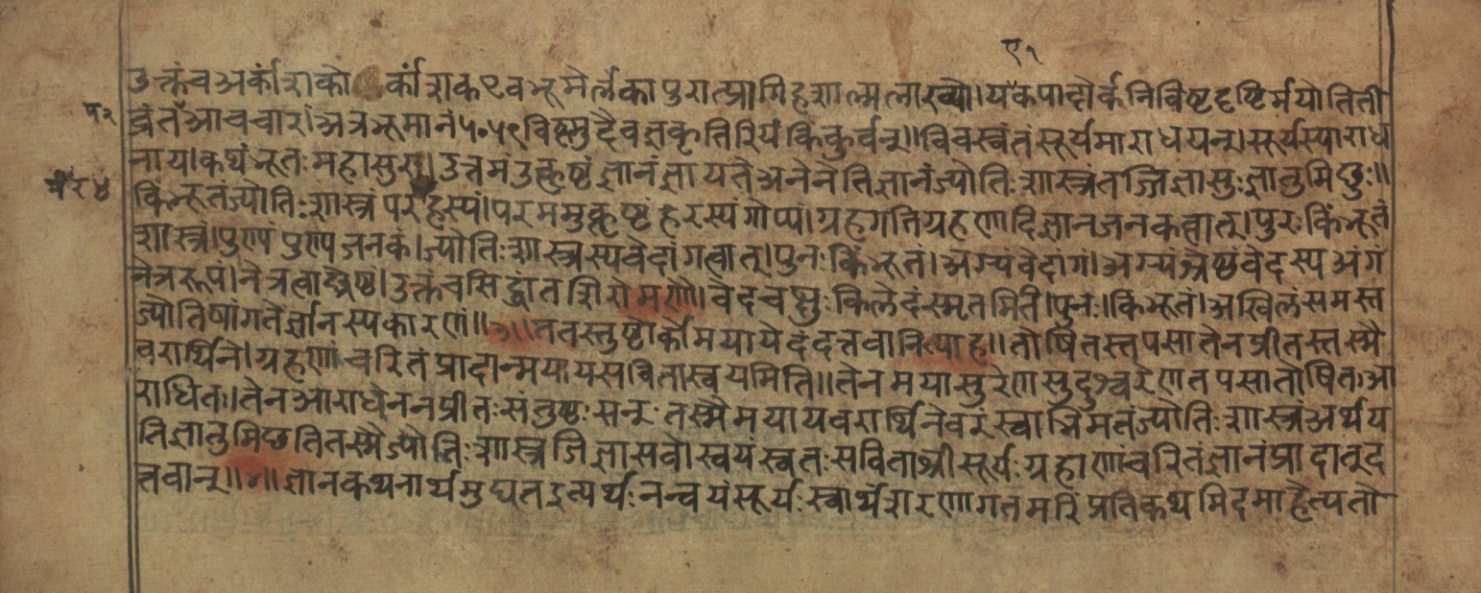 ९१
उक्तंच अर्कांशकोर्कांशक९वभूमेर्लंकापुरात्प्रागिहशाल्मलाख्यो।यकंपादोर्कनिविष्टदृष्टिर्मयोतिती
व्रंतंआचचार।अत्रभूमानं५०५९विष्णुदैवतकृतिरियं किंकुर्वन्॥विवस्वंतंसूर्यमाराधयन्।सूर्यस्याराध
नाय।कथंभूतःमहासुरः।उत्तमंउत्कृष्टंज्ञानंज्ञायतेअनेनेतिज्ञानंज्योतिःशास्त्रंतज्जिज्ञासुःज्ञातुमिछुः॥
किंभूतंज्योतिःशास्त्रं परंरहस्यं।परममुत्कृष्टंहरस्यंगोप्यं।ग्रहगतिग्रहणादिज्ञानजनकत्वात्।पुरःकिंभूतं
शास्त्रं।पुण्यं पुण्यजनकं।ज्योतिःशास्त्रस्यवेदांगत्वात्।पुनःकिंभूतं।अग्र्यंवेदांगं।अग्र्यंश्रेष्ठंवेदस्य अंगं
नेत्ररूपं।नेत्रत्वाछ्रेष्ठं।उक्तंचसिद्धांतशिरोमणौ।वेदचक्षुःकिलेदंस्मृतमिति।पुनः।किंभूतं।अखिलंसमस्त
ज्योतिषांगतेर्ज्ञानस्यकारणं॥३॥ततस्तुष्टोर्कोमयायेदंदत्तवानित्याह॥तोषितस्तपसातेनप्रीतस्तस्मै
वरार्थिने।ग्रहणांचरितंप्रादान्मयायसवितास्वयमिति॥तेनमयासुरेणसुदुश्चरेणतपसातोषितःआ
राधितः।तेनआराधनेनप्रीतःसंतुष्टःसन्ःतस्मैमयायवरार्थिनेवरंस्वाभिमतंज्योतिःशास्त्रंअर्थय
तिज्ञातुमिछतितस्मैज्योतिःशास्त्रजिज्ञासवे।स्वयंस्वतःसविताश्रीसूर्यःग्रहाणांचरितंज्ञानंप्रादात्द
त्तवान्॥४॥ज्ञानकथनार्थमुद्यतइत्यर्थःनन्वयंसूर्यःस्वार्थंशरणागतमरिंप्रतिकथमिदमाहेत्यतो